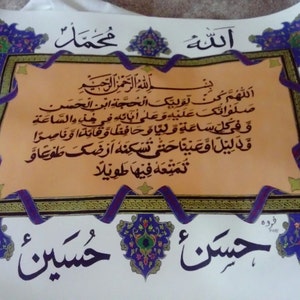 الله محمد
بسم الله الرحمن الرحيم
اللهم كن لوليك الحجة ابن الحسن
صلواتك عليه وعلى ابائه في هذه الساعة
وفي كل ساعة وليا وحافظا وقائدا وناصرا
ودليلا وعينا حتى تسكنه ارضك طوعا و
تمتعه فيها طويلا
حسن حسين